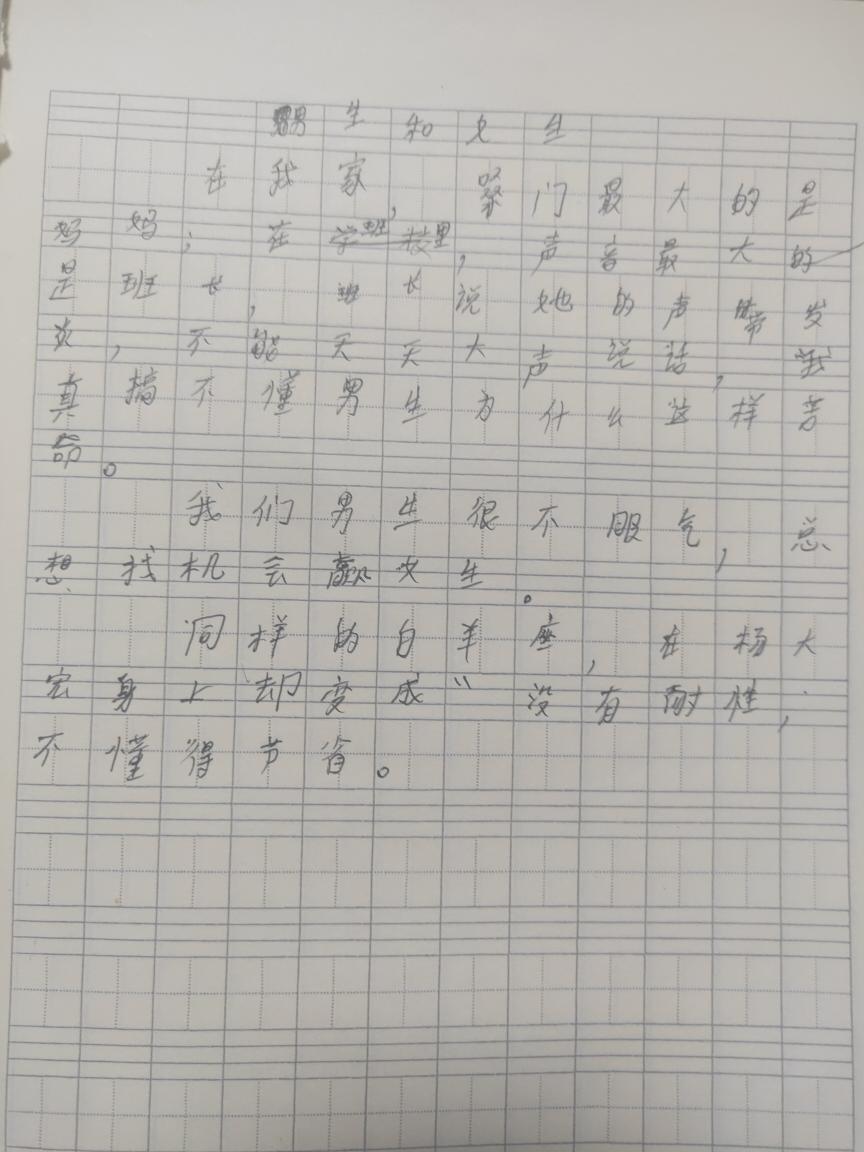 男生和女生
在我家，嗓门最大的是
妈妈；在学班校里，声音最大的
是班长，班长说她的声带发
炎，不能天天大声说话，我
真搞不懂男生为什么这样苦
命。
我们男生很不服气，总
想找机会赢女生。
同样的白羊座，在杨大
宏身上却变成“没有耐性，
不懂得节省。